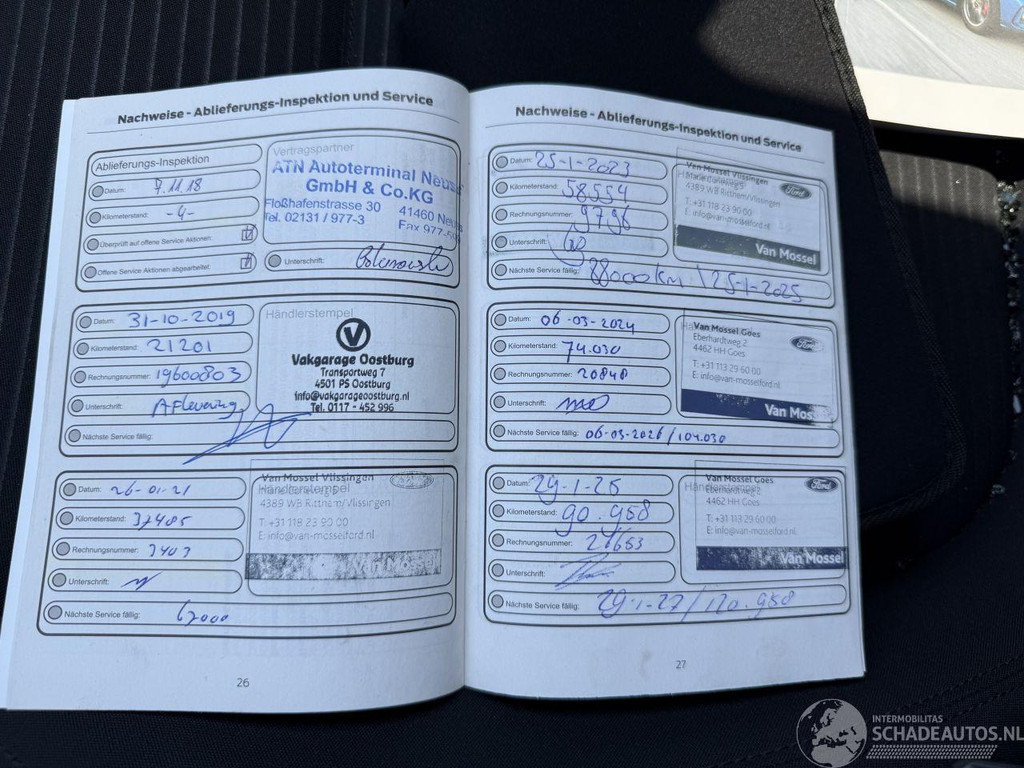 Nachweise - Ablieferungs-Inspektion und Service
Ablieferungs-Inspektion
Datum: 7.11.18
Kilometerstand: -4-
Überprüft auf offene Service Aktionen:
Offene Service Aktionen abgearbeitet:
Vertragspartner
ATN Autoterminal
GmbH & Co.KG
Floßhafenstrasse 30
41460
Tel. 02131 / 977-3
Fax
Unterschrift:
Datum: 31-10-2019
Kilometerstand: 21201
Rechnungsnummer: 19600803
Unterschrift: Aflevering
Nächste Service fällig:
Händlerstempel
Vakgarage Oostburg
Transportweg 7
4501 PS Oostburg
info@vakgarageoostburg.nl
Tel. 0117 - 452 996
Datum: 26-01-21
Kilometerstand: 37405
Rechnungsnummer: 3403
Unterschrift:
Nächste Service fällig: 67000
Van Mossel Vlissingen
Händlerstempel
4389 WB Ritthem/Vlissingen
T: +31 118 23 90 00
E: info@van-mosselford.nl
Van Mossel
26
Nachweise - Ablieferungs-Inspektion und Service
Datum: 25-1-2023
Kilometerstand: 58554
Rechnungsnummer: 9796
Unterschrift:
Nächste Service fällig: 88000km \ 25-1-2025
Van Mossel Vlissingen
4389 WB Ritthem/Vlissingen
T: +31 118 23 90 00
E: info@van-mosselford.nl
Ford
Van Mossel
Datum: 06-03-2024
Kilometerstand: 74.030
Rechnungsnummer: 20848
Unterschrift:
Nächste Service fällig: 06-03-2026/104.030
Van Mossel Goes
Eberhardtweg 2
4462 HH Goes
T: +31 113 29 60 00
E: info@van-mosselford.nl
Ford
Van Mossel
Datum: 29-1-25
Kilometerstand: 90.958
Rechnungsnummer: 27653
Unterschrift:
Nächste Service fällig: 29-1-27/120.958
Van Mossel Goes
Eberhardtweg 2
4462 HH Goes
T: +31 113 29 60 00
E: info@van-mosselford.nl
Ford
Van Mossel
27
INTERMOBILITAS
SCHADEAUTOS.NL